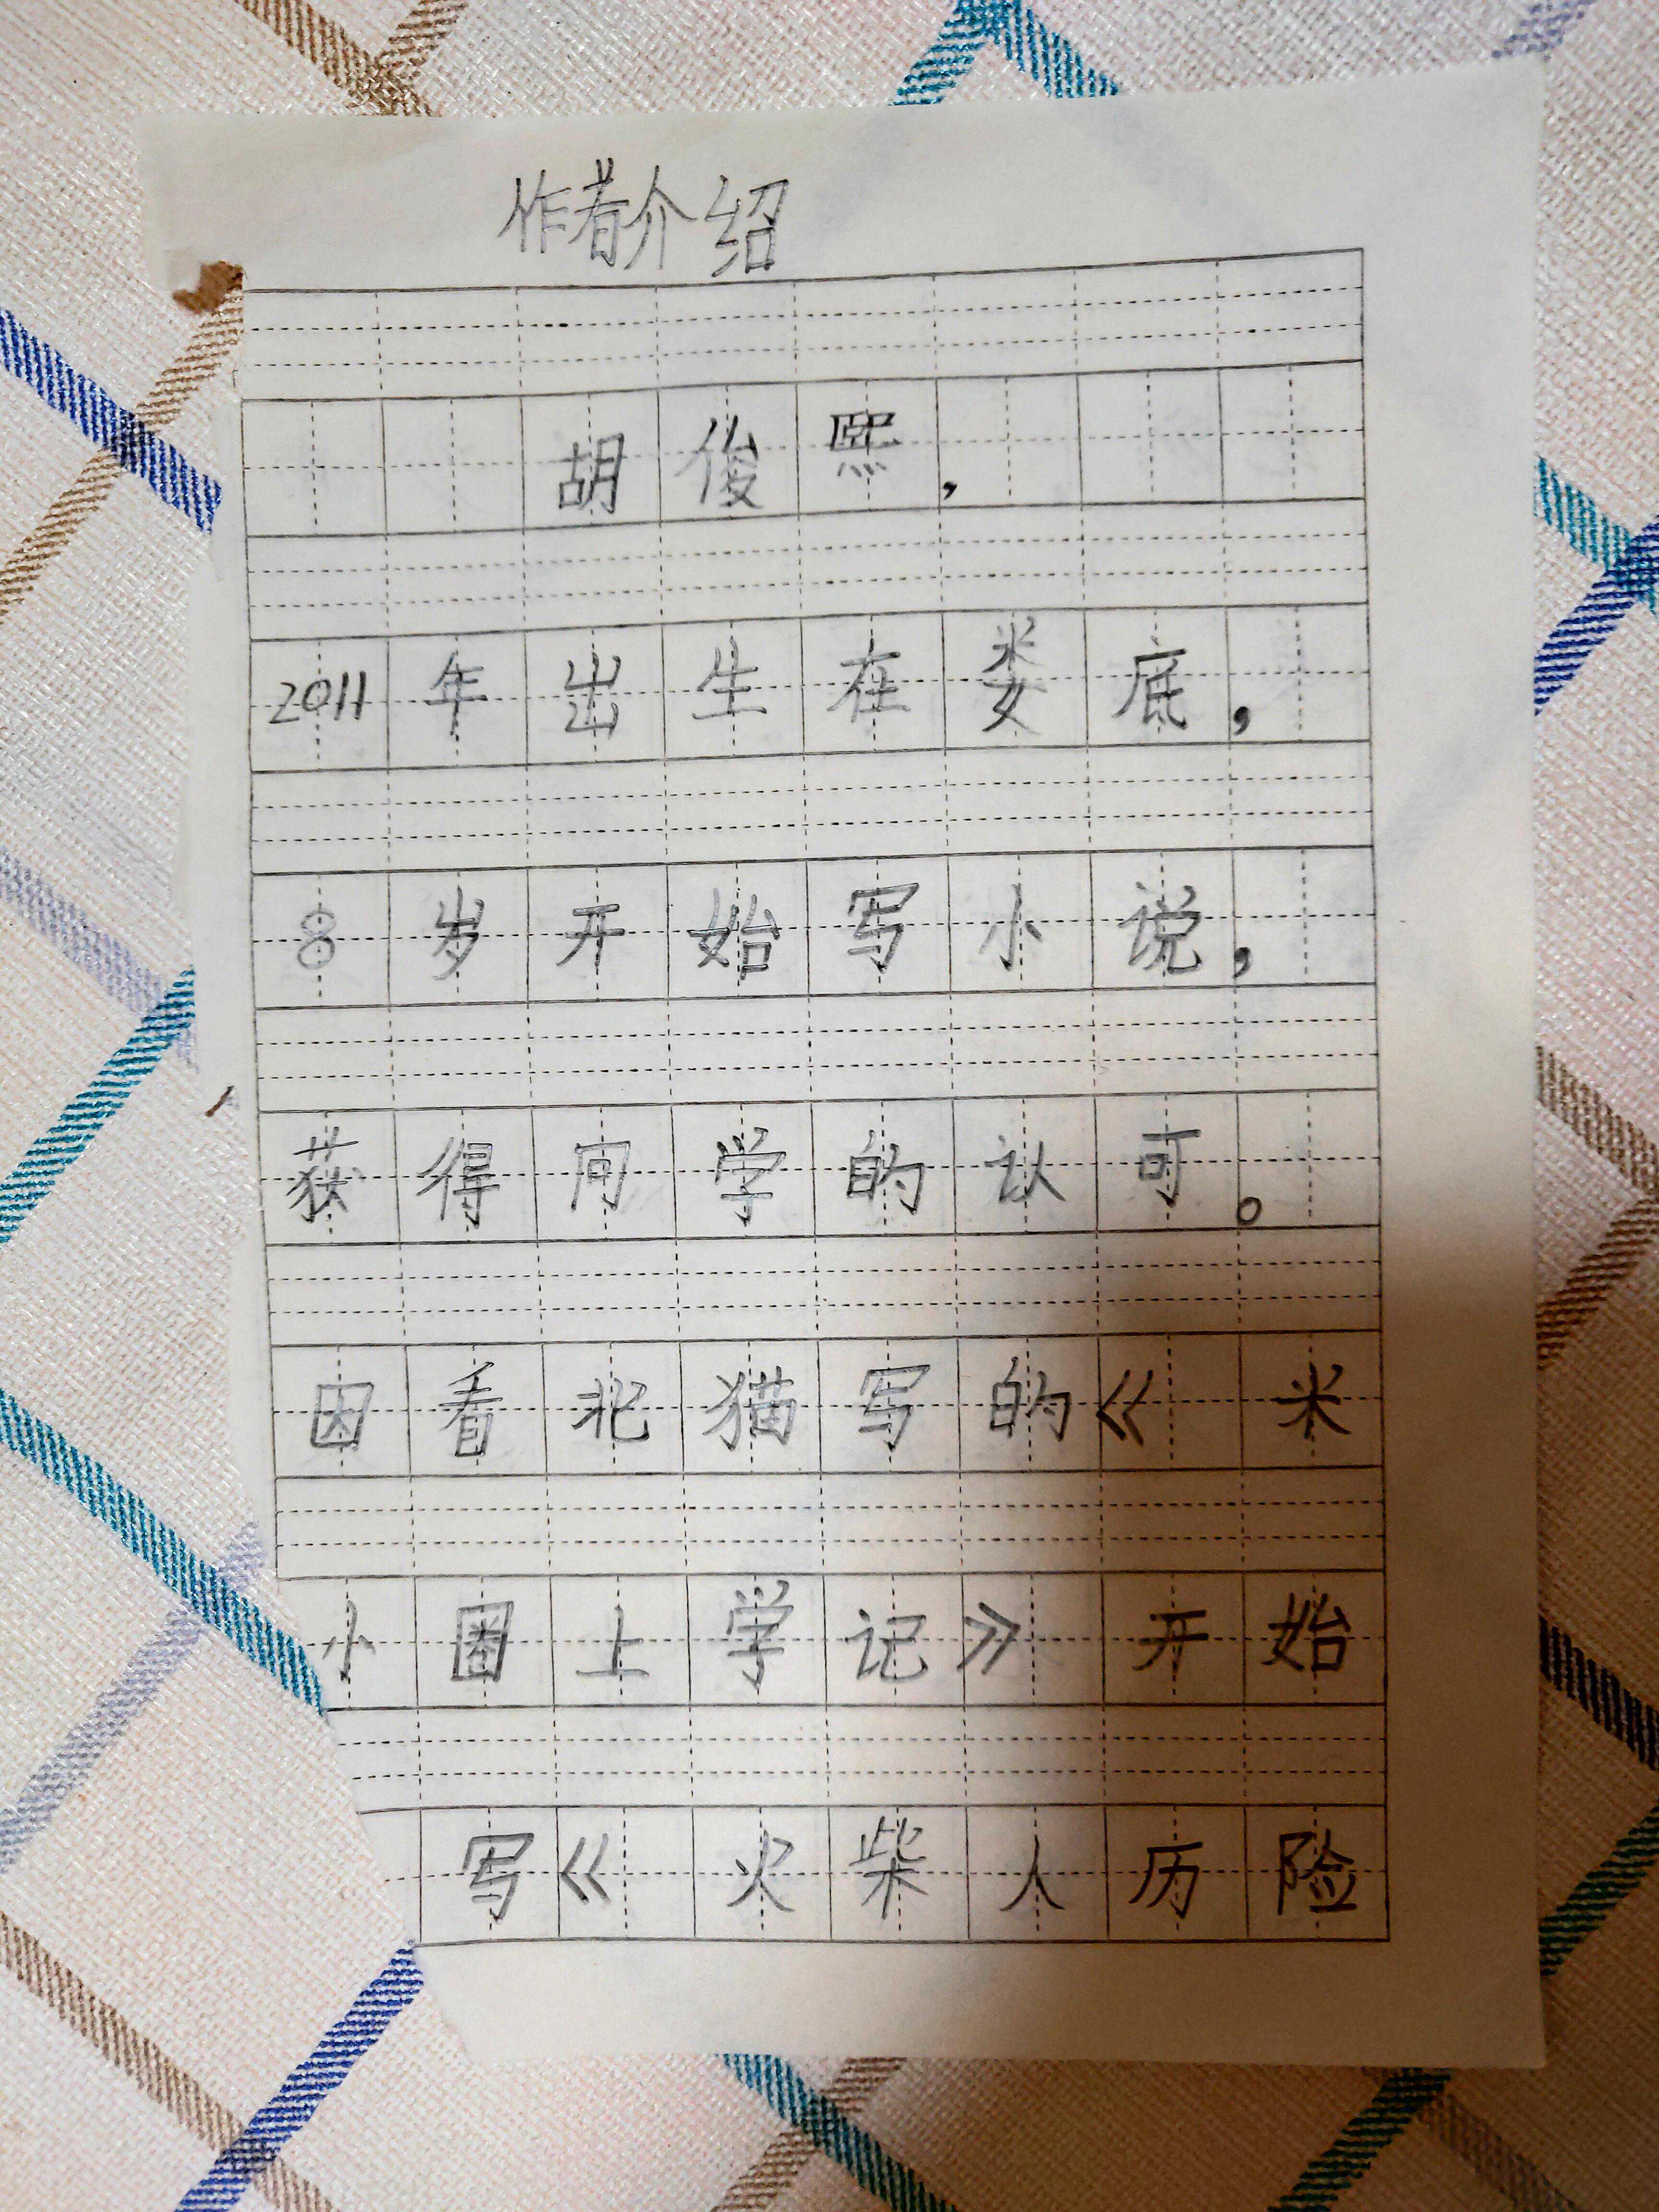 作者介绍
胡俊熙，
2011年出生在娄底，
8岁开始写小说，
获得同学的认可。
因看北猫写的《米
小圈上学记》开始
写《火柴人历险